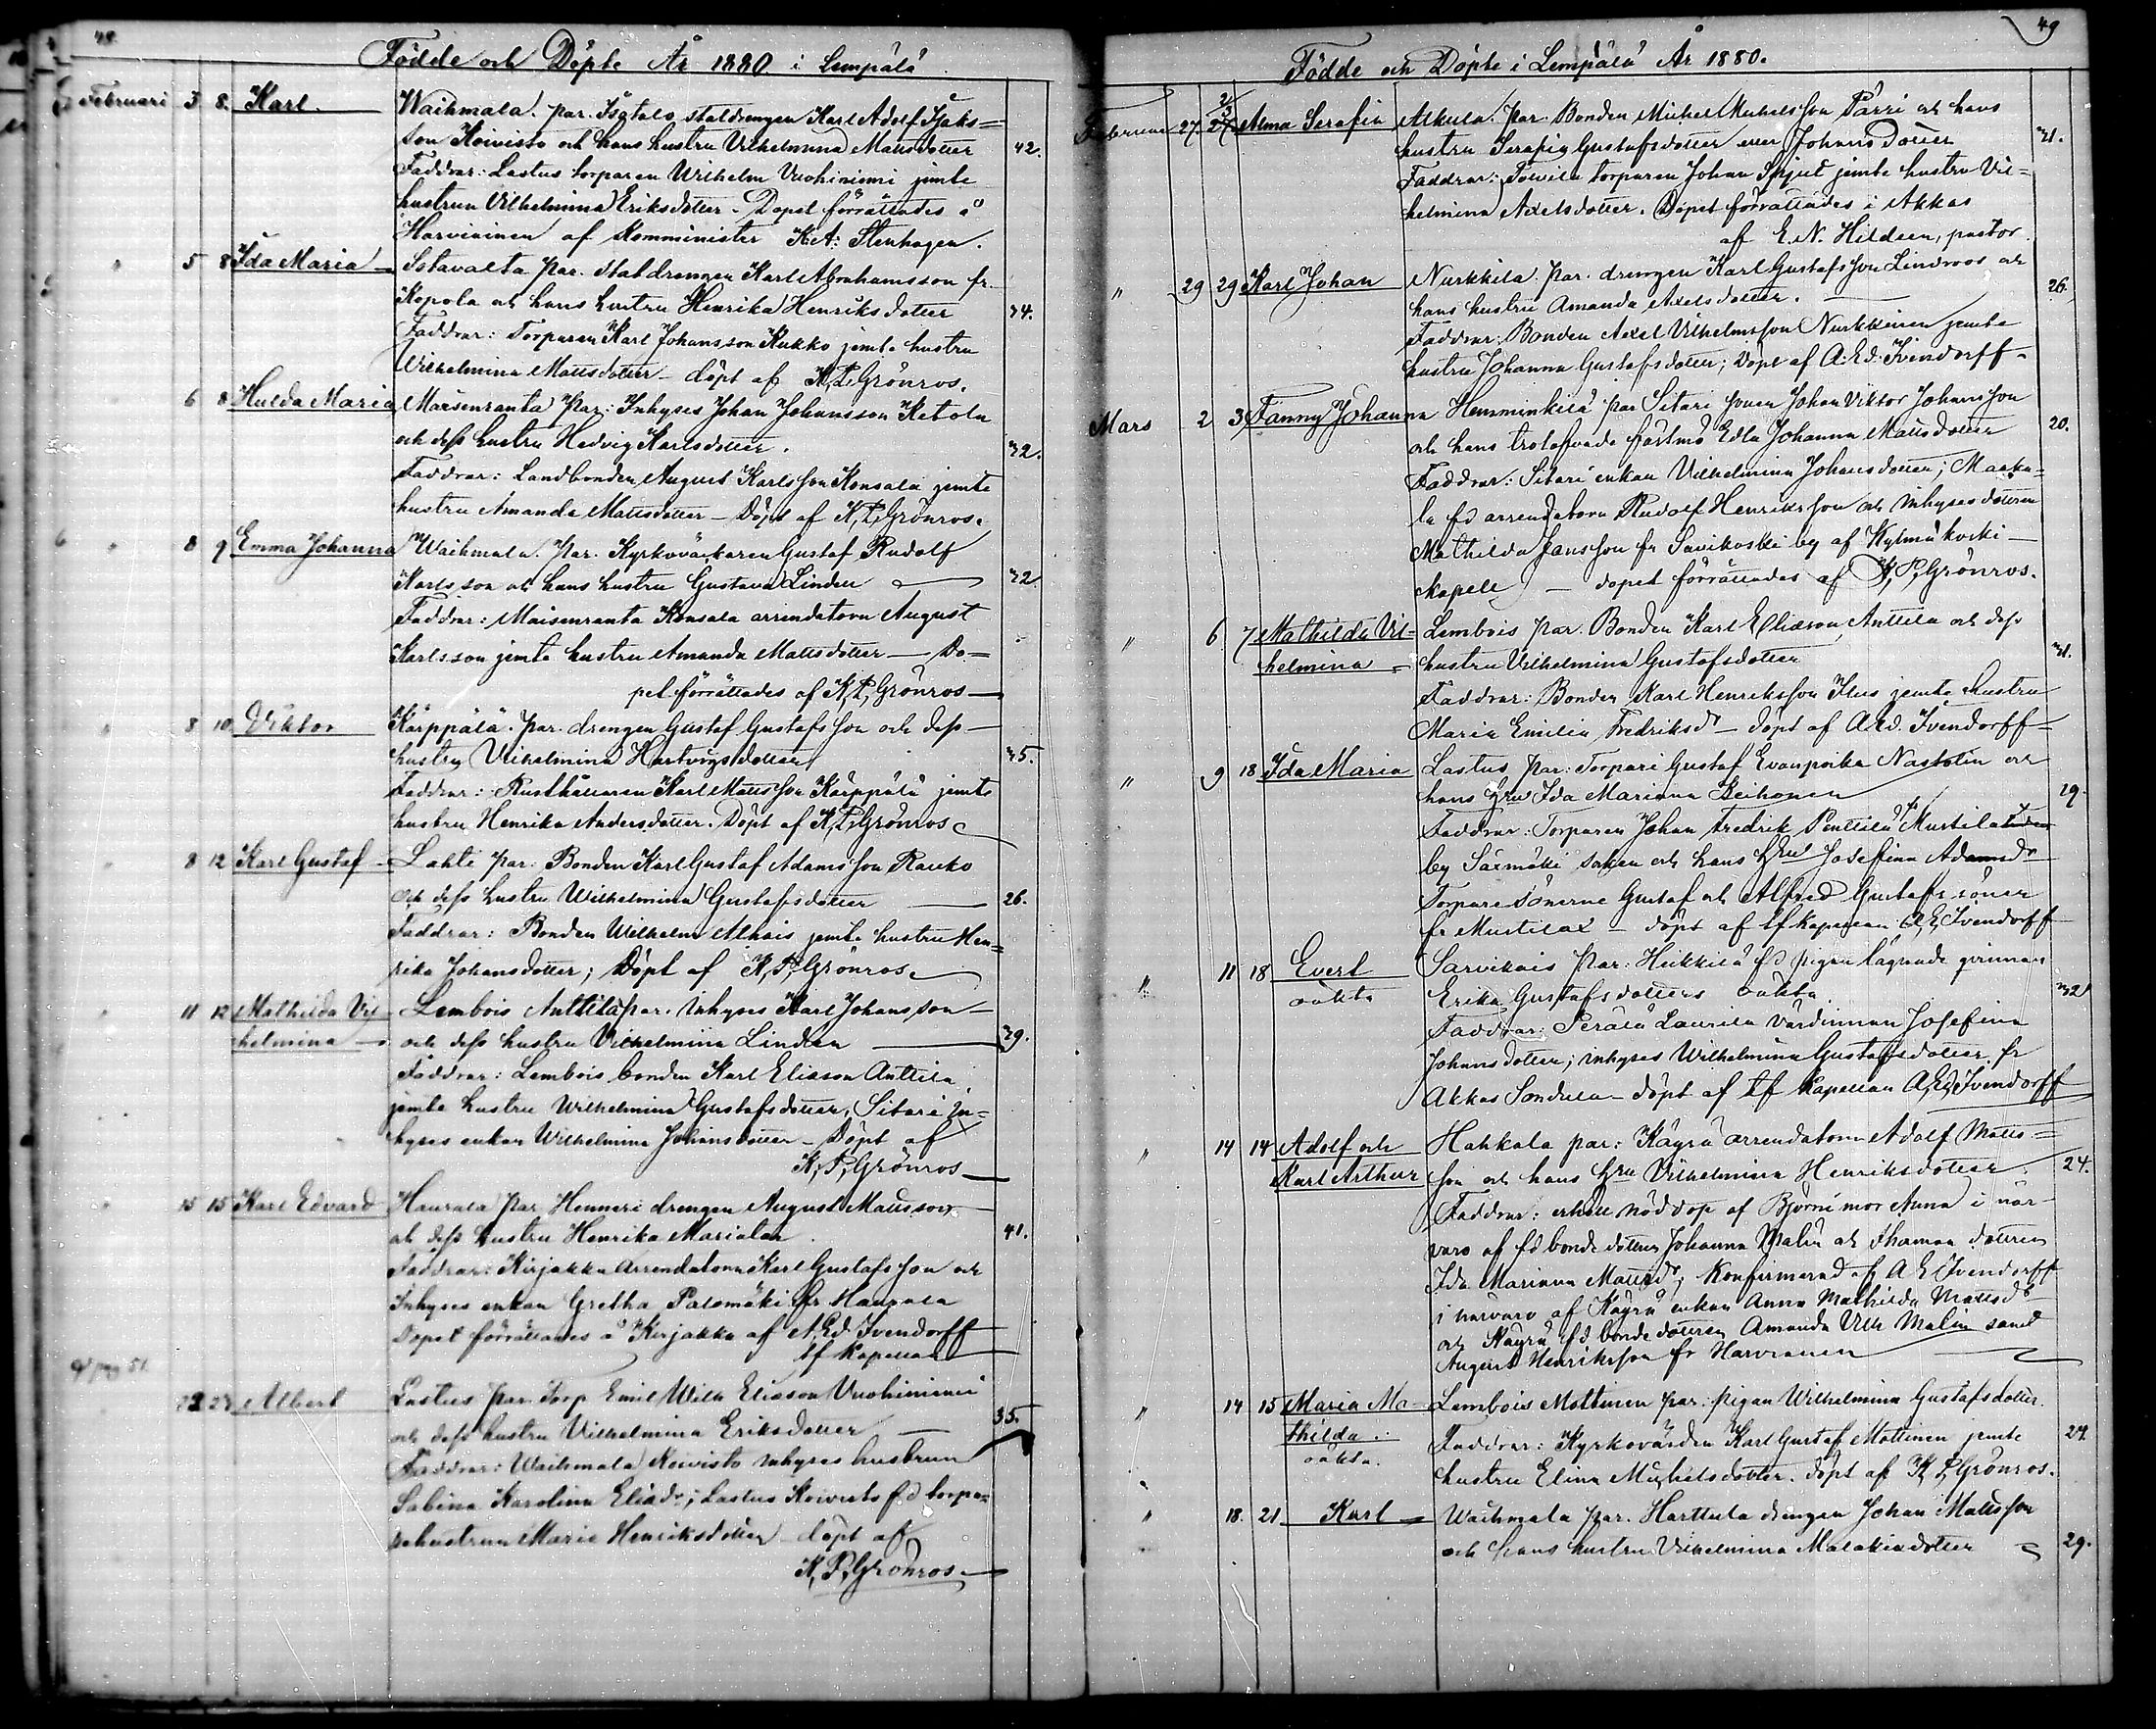 48
Födde och Döpte År 1880 i Lempälä
Februari 3 8. Karl Waihmala. par. Isotalo staldrengen Karl Adolf Isaks=
son Koivisto och hans hustru Vilhelmina Mattsdotter 42.
Faddrar: Lastus torparen Wilhelm Vuohiniemi jemte
hustrun Vilhelmina Eriksdotter. Dopet förrättades å
Harviainen af Komminister K. A: Stenhagen.
" 5 8 Ida Maria Sotavalta par. Staldrengen Karl Abrahamsson fr.
Kopola och hans hustru Henrika Henriksdotter 34.
Faddrar: Torparen Karl Johansson Kukko jemte hustru
Wilhelmina Mattsdotter - döpt af K, P, Grönros.
6 8 Hulda Maria Maisenranta par: Inhyses Johan Johansson Ketola
och dess hustru Hedvig Karlsdotter. 32.
Faddrar: Landbonden August Karlsson Konsala jemte
hustru Amanda Mattsdotter - Döpt af K, P, Grönros.
" 8 9 Emma Johanna Waihmala. par. Kyrkoväktaren Gustaf Rudolf
Karlsson och hans hustru Gustava Linden 32
Faddrar: Maisenranta Konsala arrendatorn August
Karlsson jemte hustru Amanda Mattsdotter - Do=
pet förrättades af K, P, Grönros
" 8 10 Viktor Kärppälä. par. drengen Gustaf Gustafsson och dess
hustru Vilhelmina Hartvigsdotter 35.
Faddrar: Rusthållaren Karl Mattsson Kärppälä jemte
hustru Henrika Andersdotter. Döpt af K, P, Grönros
" 8 12 Karl Gustaf Lahti par: Bonden Karl Gustaf Adamsson Rauko
och dess hustru Wilhelmina Gustafsdotter 26.
Faddrar: Bonden Wilhelm Alhais jemte hustru Hen=
rika Johansdotter; Döpt af K, P, Grönros.
" 11 12 Mathilda Vil- Lembois Anttila par. Inhyses Karl Johansson
helmina och dess hustru Vilhelmiina Linden 39.
Faddrar: Lembois bonden Karl Eliason Anttila
jemte hustru Wilhelmina Gustafsdotter, Sitari In=
hyses enkan Wilhelmina Johansdotter - Döpt af
K, P, Grönros
" 15 15 Karl Edvard Haurala par Henneri drengen August Mattsson
och dess hustru Henrika Marialan 41.
Faddrar: Kirjakka Arrendatorn Karl Gustafsson och
Inhyses enkan Gretha Palomäki fr Haurala
Dopet förrättades å Kirjakka af A. Ed. Ivendorff
tf Kapellan
pag 51.
22 23 Albert Lastus par. Torp Emil Wilh Eliason Vuohiniemi
och dess hustru Vilhelmina Eriksdotter 35.
Faddrar: Waihmala Koivisto inhyses hustrun
Sabina Karolina Eliadr; Lastus Koivisto f.d torpa=
rehustrun Maria Henriksdotter döpt af
K, P, Grönros
49
Födde och Döpte i Lempälä År 1880.
Februari 27 2/3 27 Alma Serafia Alkula. par. Bonden Michel Michelsson Pärri och hans
hustru Serafia Gustafsdotter eller Johansdotter 31.
Faddrar: torparen Johan jemte hustru Vil=
helmina Axelsdotter. Dopet förrättades i Akkas
af E. N. Hildeen, pastor.
" 29 29 Karl Johan Nurkkila par. drengen Karl Gustafsson Lindroos och
hans hustru Amanda Axelsdotter. 26.
Faddrar: Bonden Axel Vilhelmsson Nurkkinen jemte
hustru Johanna Gustafsdotter; Döpt af A. Ed. Ivendorff
Mars 2 3 Fanny Johanna Hemminkilä par Sitari sonen Johan Viktor Johansson
och hans trolofvade fästmö Edla Johanna Mattsdotter 20.
Faddrar: Sitari enkan Vilhelmina Johansdotter; Maaku-
la fd arrendatorn Rudolf Henriksson och inhysesdottren
Mathilda Jansson fr Savikoski by af Kylmäkoski
kapell - dopet förrättades af K, P, Grönros.
" 6 7 Mathilda Vil- Lembois par. Bonden Karl Eliason Anttila och dess
helmina hustru Vilhelmina Gustafsdotter 31.
Faddrar: Bonden Karl Henriksson Ilus jemte hustru
Maria Emilia Fredriksdr - döpt af A. Ed. Ivendorff
" 9 18 Ida Maria Lastus par: Torpare Gustaf Evanpoika Nastolin och
hans hru Ida Mariana Keihonen 29.
Faddrar: Torparen Johan Fredrik Penttilä fr Mustila
by Säxmäki socken och hans hru Josefina Adamsdr
Torpare sönerne Gustaf och Alfred Gustafs söner
fr Mustilax - döpt af tf Kapellan A, E, Ivendorff
" 11 18 Evert Sarvikais par: Heikkilä fd pigan lägrade qvinnan
oäkta Erika Gustafsdotters oäkta 32
Faddrar: Perälä Laurila värdinnan Josefina
Johansdotter; inhyses Wilhelmina Gustafsdotter fr
Akkas Sondula - döpt af tf Kapellan A, Ed, Ivendorff
" 14 14 Adolf och Hahkala par: Käyrä arrendatorn Adolf Matts=
Karl Arthur son och hans hru Vilhelmina Henriksdotter 24.
Faddrar: erhöll nöddop af Björni mor Anna i när-
varo af fd bonde dottren Johanna Malin och dottren
Ida Mariana Mattsdr; Konfirmerad af A E Ivendorff
i närvaro af Käyrä enkan Anna Mathilda Mattsdr
och Käyrä fd bonde dottren Amanda Vilh Malin samt
August Henriksson fr Harvianen
" 14 15 Maria Ma- Lembois Mottinen par: pigan Wilhelmina Gustafsdotter.
thilda Faddrar: Kyrkovärden Karl Gustaf Mottinen jemte 24.
oäkta. hustru Elina Michelsdotter. döpt af K, P, Grönros.
" 18. 21 Karl Waihmala par. Harttula drengen Johan Mattsson
och hans hustru Vilhelmina Malakiadotter 29.